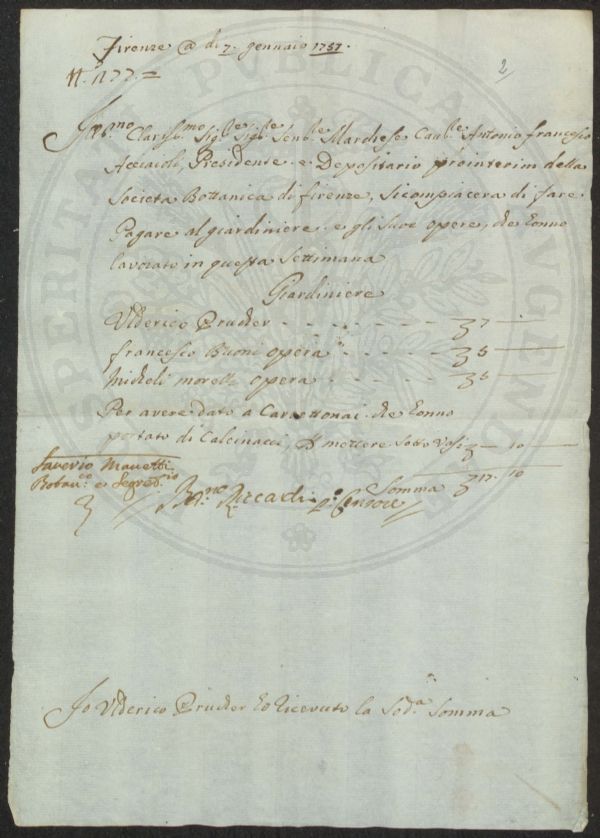 Firenze @ di 7. gennaio 1757.
N.º 177. =
2
Ill.mo Clariss.mo Sig.re Sig.re Marchese Cav.re Antonio francesco
Acciaioli, Presidente. e. Depositario prointerim della
Societa Bottanica di firenze, si compiacera di fare.
Pagare al giardiniere. e gli suoi opere, che ҽonno
lavorato in questa Settimana
Giardiniere
Ulderico Prucher - - - - - - 7 —
francesco Buoni opera - - - - 5 —
Micheli morelli opera - - - - 5 —
Per avere dato a Carrettonai. che honno
portato di Calcinacci, p mettere sotto Vasi — 10 —
Saverio Manetti
Botan.co e Segret.rio
Somma 17. 10
Riccardi p.º Censore
Io Ulderico Prucher ho ricevuto la Sod.a Somma
PROSPERITATI PUBLICAE AUGENDAE